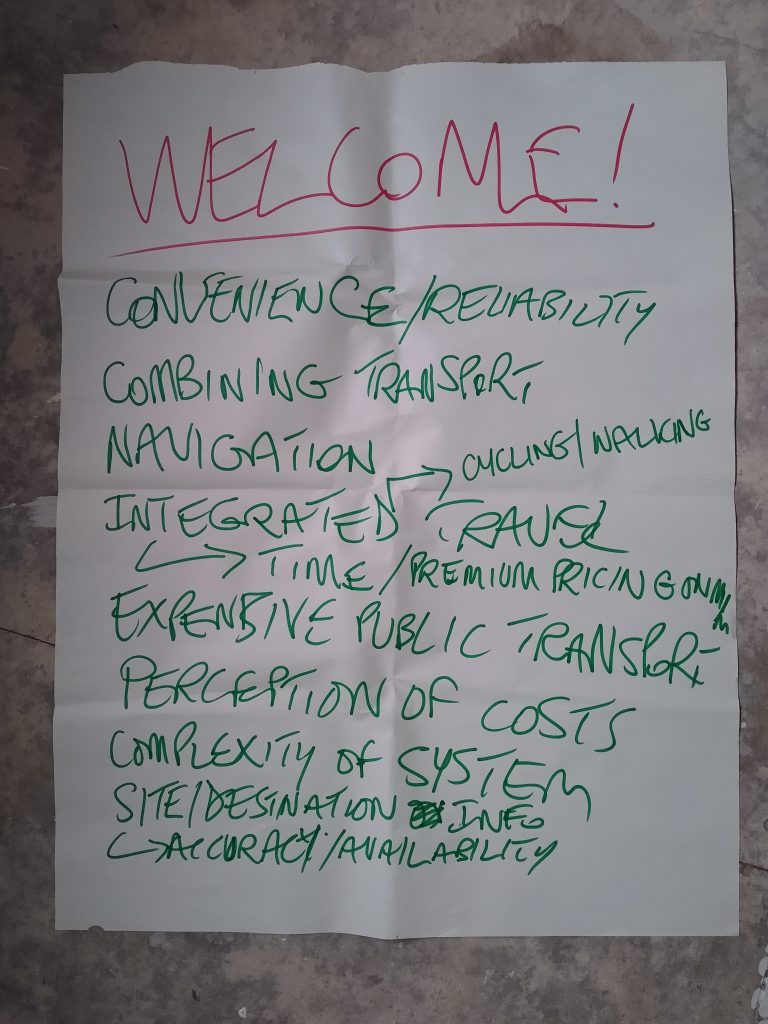 WELCOME!
CONVENIENCE/RELIABILITY
COMBINING TRANSPORT
NAVIGATION
CYCLING/WALKING
INTEGRATED TRAVEL
TIME/PREMIUM PRICING ON
EXPENSIVE PUBLIC TRANSPORT
PERCEPTION OF COSTS
COMPLEXITY OF SYSTEM
SITE/DESINATION INFO
ACCURACY/AVAILABILITY